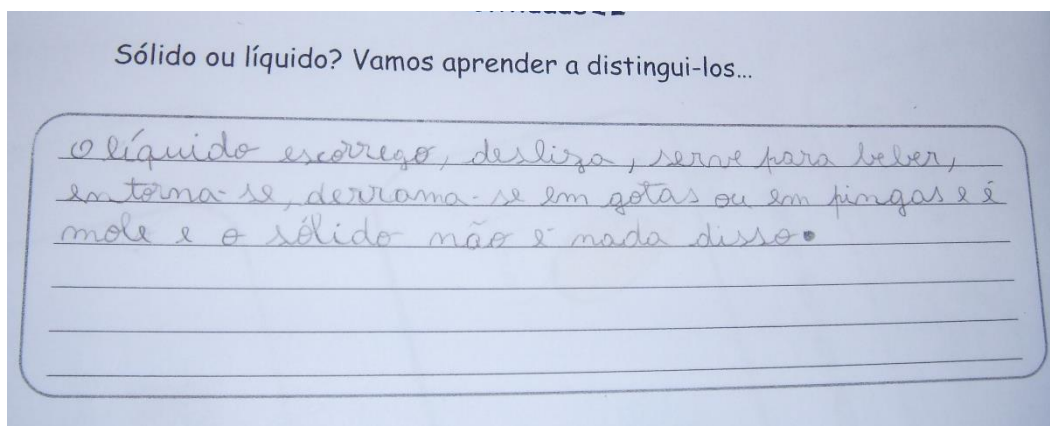 Sólido ou líquido? Vamos aprender a distingui-los...
O líquido escorrego, desliza, serve para beber,
entorna-se, derrama-se em gotas ou em pingas e é
mole e o sólido não é nada disso.